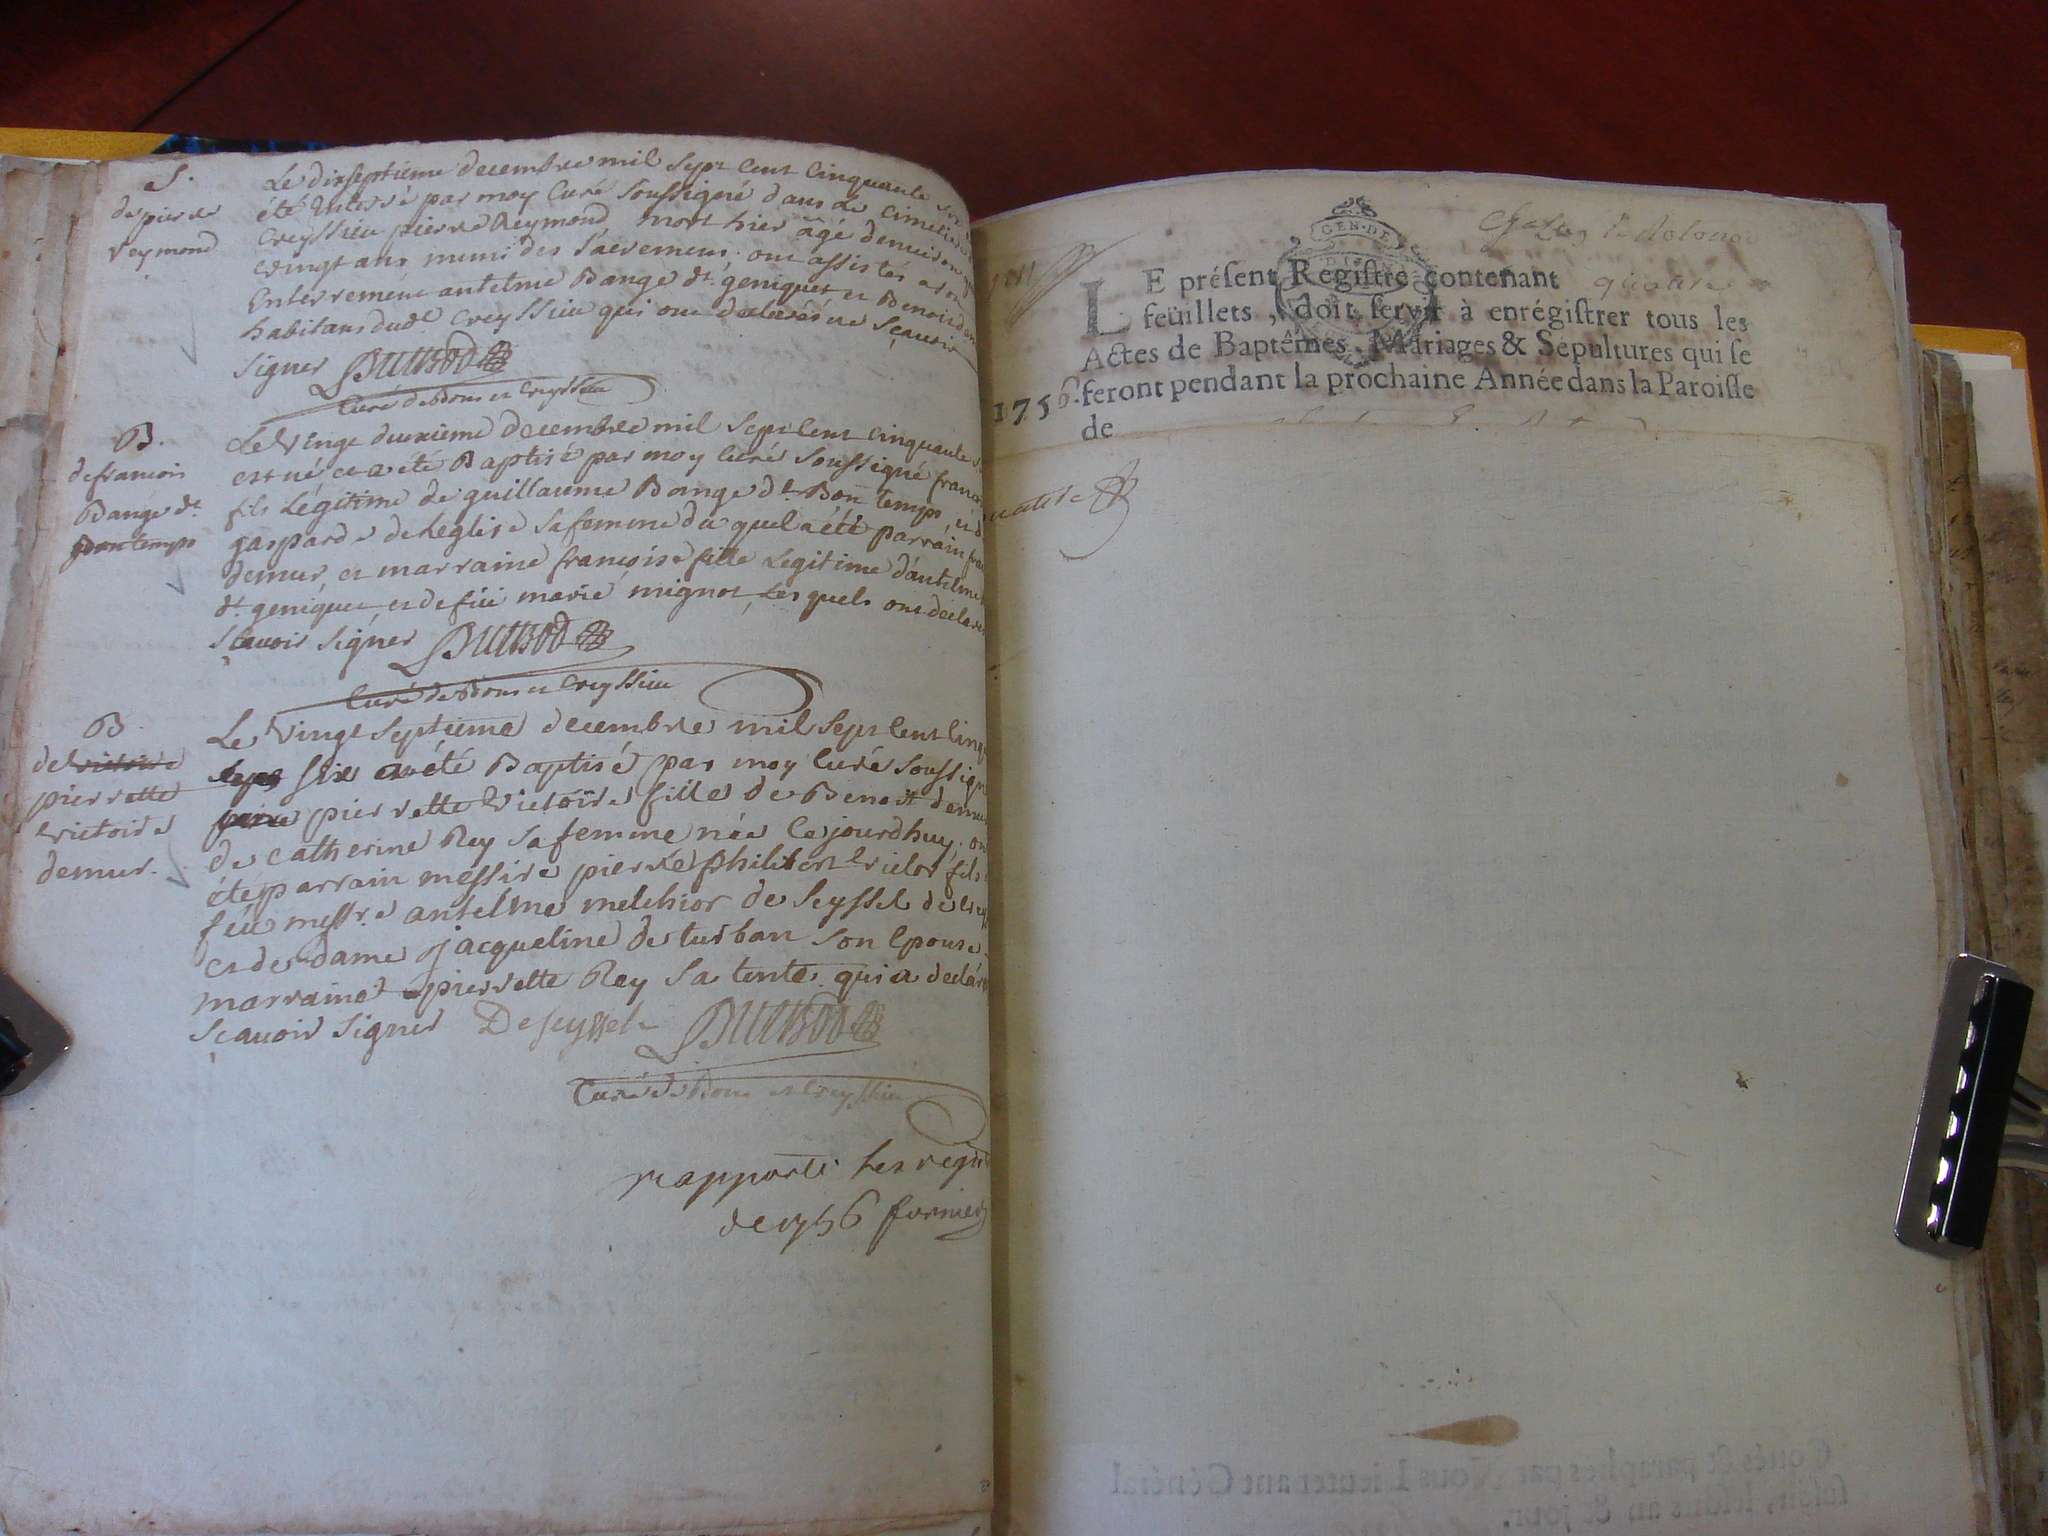 S.
de pierre
Reymond
Le dixseptieme decembre mil sept cent cinquante six a
été enterré par moy curé soussigné dans le cimetiere de
Creyssieu pierre Reymond mort hier âgé denviron
vingt ans muni des sacremens. ont assistés a son
Enterrement antelme Bange dt. geniquet et Benoit
habitans dudt. Creyssieu qui ont declarés ne sçavoir
signer Buttod
Curé de Bons et Creyssieu
B.
de francois
Bange dt.
Bontemps
Le vingt deuxieme decembre mil sept cent cinquante
est né et a été Baptisé par moy curé soussigné
fils Légitime de guillaume Bange dt. Bon temps, et de
gasparde de Leglise sa femme du quel a été parrain
demur, et marraine françoise fille Legitime d'antelme
dt. geniquet et de füe marie mignot, Les quels ont declaré
sçavoir signer Buttod
Curé de Bons et Creyssieu
B
de victoire
pierrette
victoire
demur.
Le vingt septieme decembre mil sept cent cinq
sept six a été Baptisé par moy curé soussigné
pierrette victoire fille de Benoit demur
de catherine Rey sa femme née ce jourdhuy, ont
été parrain messire pierre philibert victor fils
feu messre antelme melchior de seyssel
et de dame jacqueline de turban son Epouse
marraine pierrette Rey sa tente qui a declaré
sçavoir signer De seyssel Buttod
Curé de Bons et Creyssieu
rapporté les regis
de 1756 fornier
GEN. DE
LE préſent Regiſtre contenant quatre
feüillets, doit ſervir à enrégiſtrer tous les
Actes de Baptêmes, Mariages & Sépultures qui ſe
1756. feront pendant la prochaine Année dans la Paroiſſe
de
Cotés & paraphés par Nous Lieutenant Général
ſuſdit, leſdits an & jour.